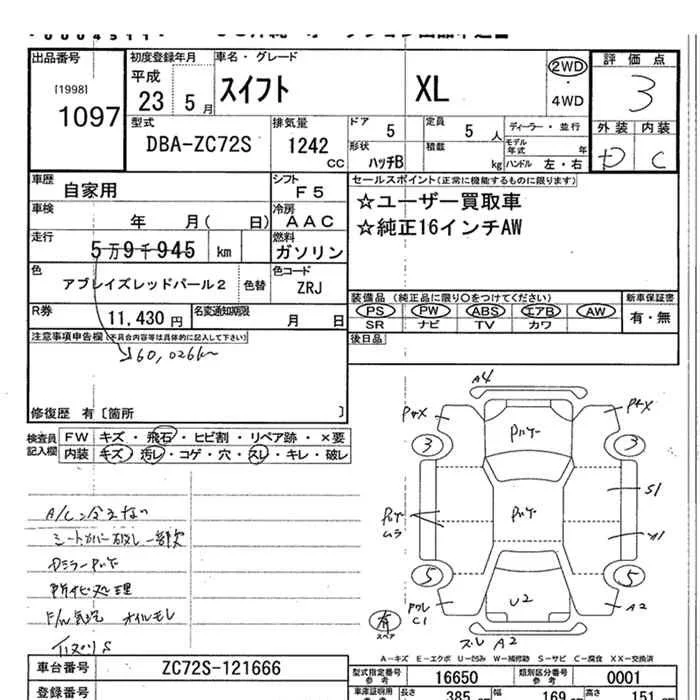 出品番号 初度登録年月 車名・グレード 評価点
[1998] 平成 2WD
1097 23 5月 スイフト XL ・ 3
4WD
型式 排気量 ドア 5 定員 5人 ディーラー・並行 外装 内装
DBA-ZC72S 1242 cc 形状 ハッチB 積載 kg モデル年式 年 ハンドル 左・右 D C
車歴 自家用 シフト F5 セールスポイント(正常に機能するものに限ります)
車検 年 月( 日) 冷房 AAC ☆ユーザー買取車
走行 5万9千945 km 燃料 ガソリン ☆純正16インチAW
色 アブレイズレッドパール2 色替 色コード ZRJ
装備品(純正品に限り○をつけてください) 新車保証書
R券 11,430円 名変通知期限 月 日 PS PW ABS エアB AW 有・無
SR ナビ TV カワ
注意事項申告欄(不具合内容等は具体的に記入して下さい) 後日品
60,026km
修復歴 有[箇所 ]
検査員記入欄 FW キズ・飛石・ヒビ割・リペア跡・×要
内装 キズ・汚レ・コゲ・穴・スレ・キレ・破レ
A4
3 3
S1
5 5
U2
C1 A2
有 スペア
A2
A-キズ E-エクボ U-凹み W-補修跡 S-サビ C-腐食 XX-交換済
車台番号 ZC72S-121666 型式指定番号 参考 16650 類別区分番号 参考 0001
登録番号 車庫証明用 参考 長さ 385 幅 169 高さ 151